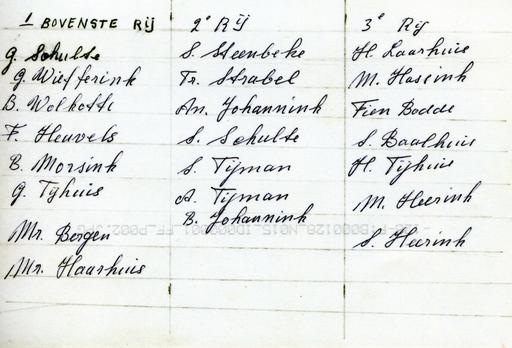 1 BOVENSTE RIJ
G. Schulte
G. Wiefferink
B. Wolkotte
F. Heuvels
B. Morsink
G. Tijhuis
Mr. Bergen
Mr. Haarhuis
2e RIJ
S. Steenbeke
Tr. Strabel
An. Johannink
S. Schulte
S. Tijman
A. Tijman
B. Johannink
3e Rij
H. Laarhuis
M. Hassink
Fien Bodde
S. Baalhuis
H. Tijhuis
M. Heerink
S. Heerink